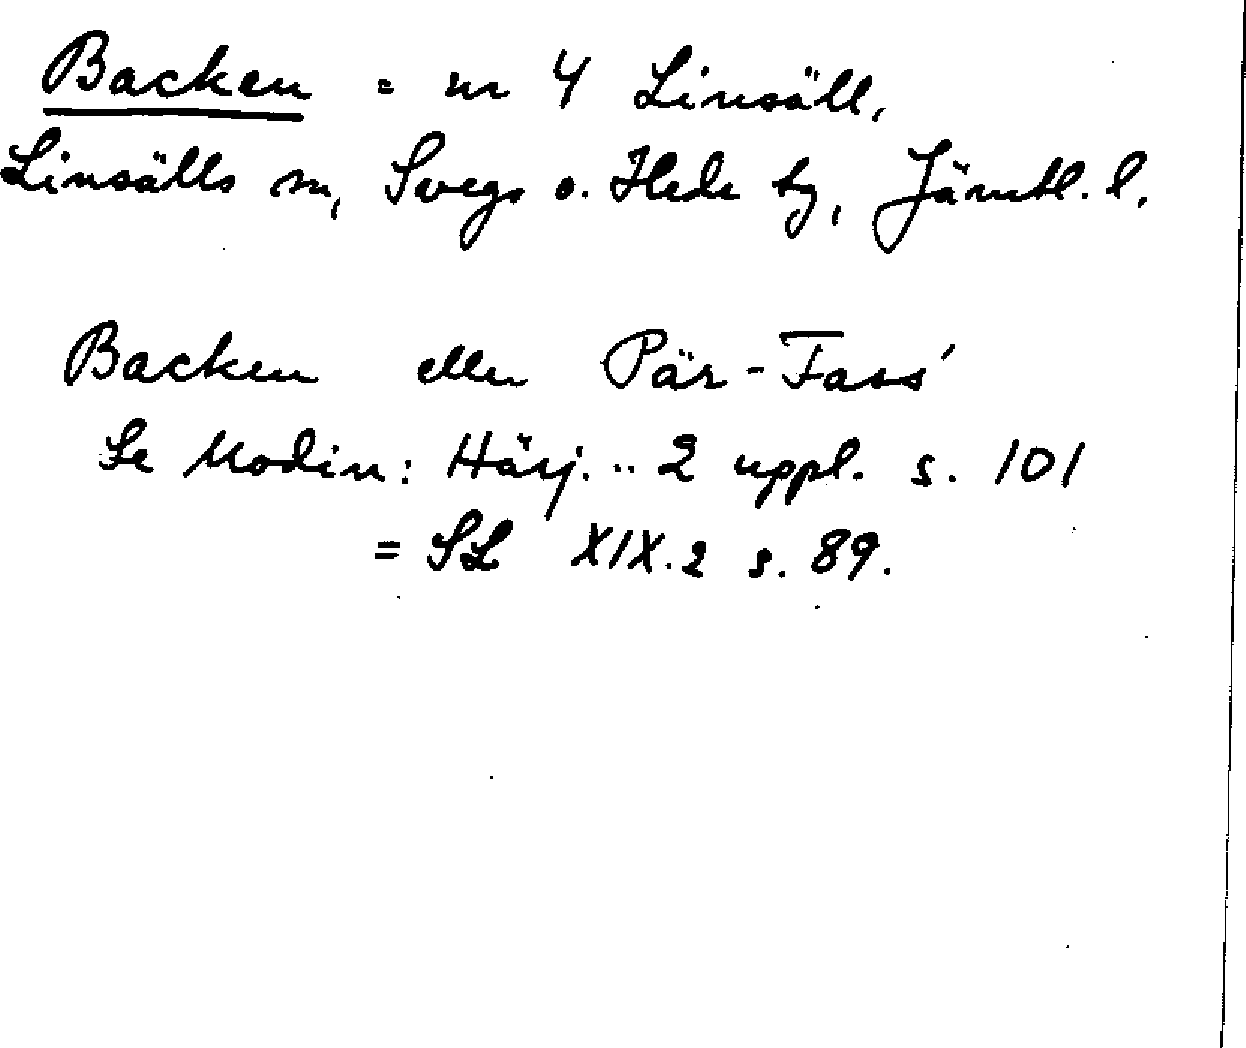 Backen = nr 4 Linsäll,
Linsälls sn, Svegs o. Hede tg, Jämtl. l.
Backen eller Pär-Fass'
Se Modin: Härj. .. 2 uppl. s. 101
= SL XIX.2 s. 89.